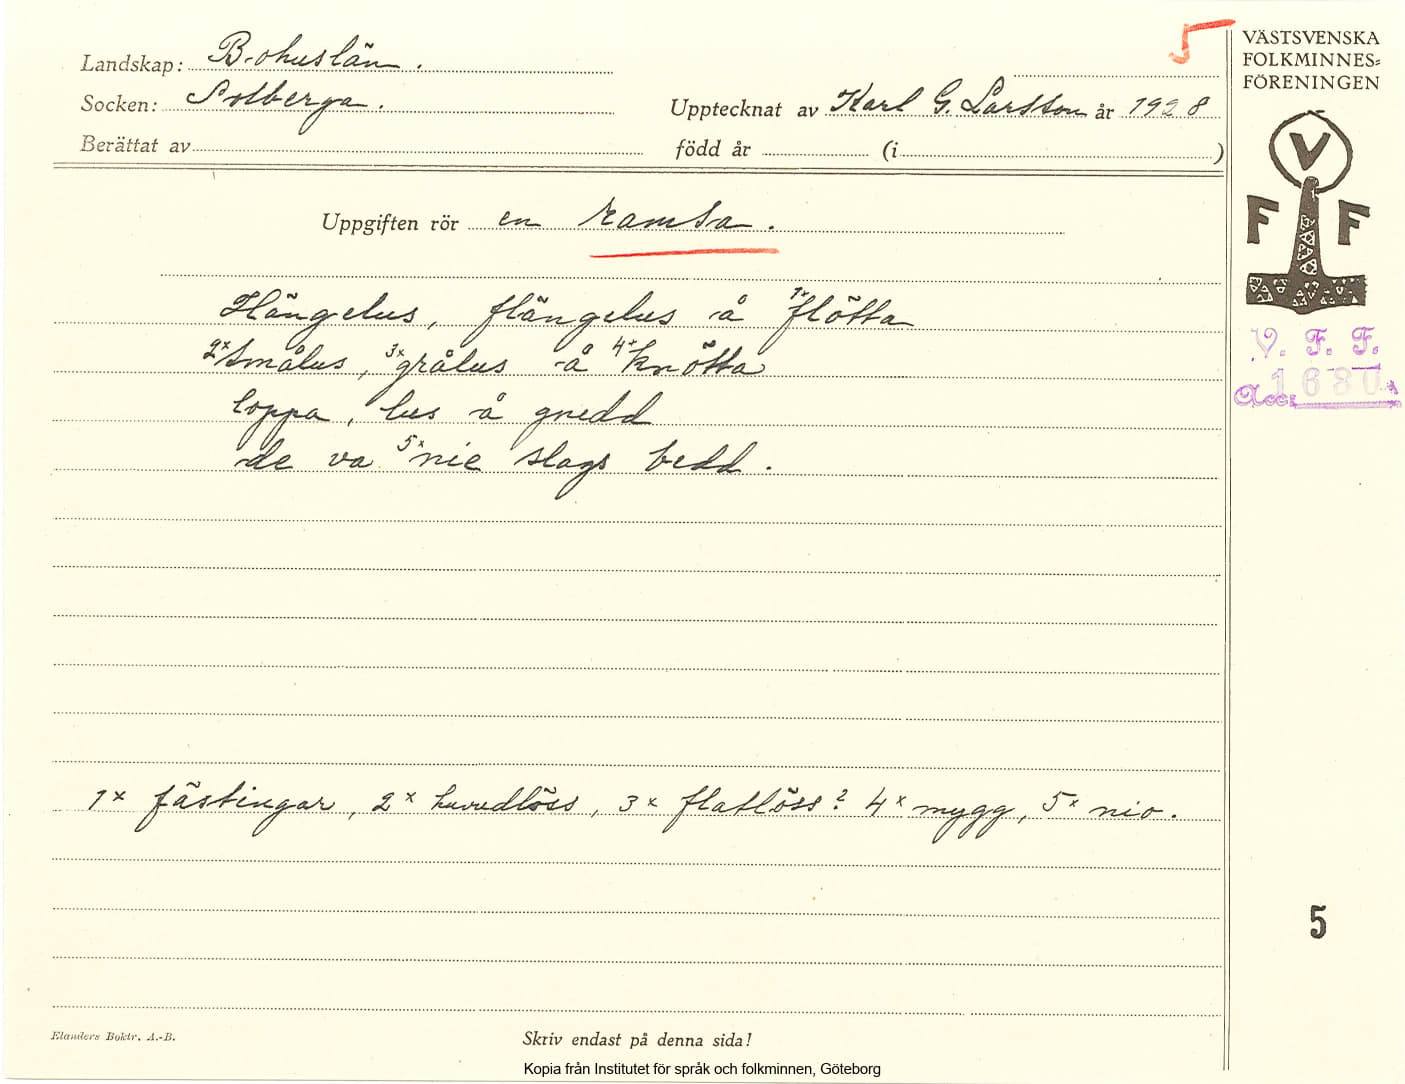 5
VÄSTSVENSKA
FOLKMINNES=
FÖRENINGEN
Landskap: Bohuslän.
Socken: Solberga.
Upptecknat av Karl G. Larsson år 1928
Berättat av
född år (i )
V
F F
Uppgiften rör en ramsa.
Hängelus, flängelus å 1x flötta
2x smålus, 3x grålus å 4x knötta
loppa, lus å gnedd
de va 5x nie slags bedd.
V. F. F.
Acc. 1680
1x fästingar, 2x huvudlöss, 3x flatlöss? 4x mygg, 5x nio.
5
Elanders Boktr. A.-B.
Skriv endast på denna sida!
Kopia från Institutet för språk och folkminnen, Göteborg